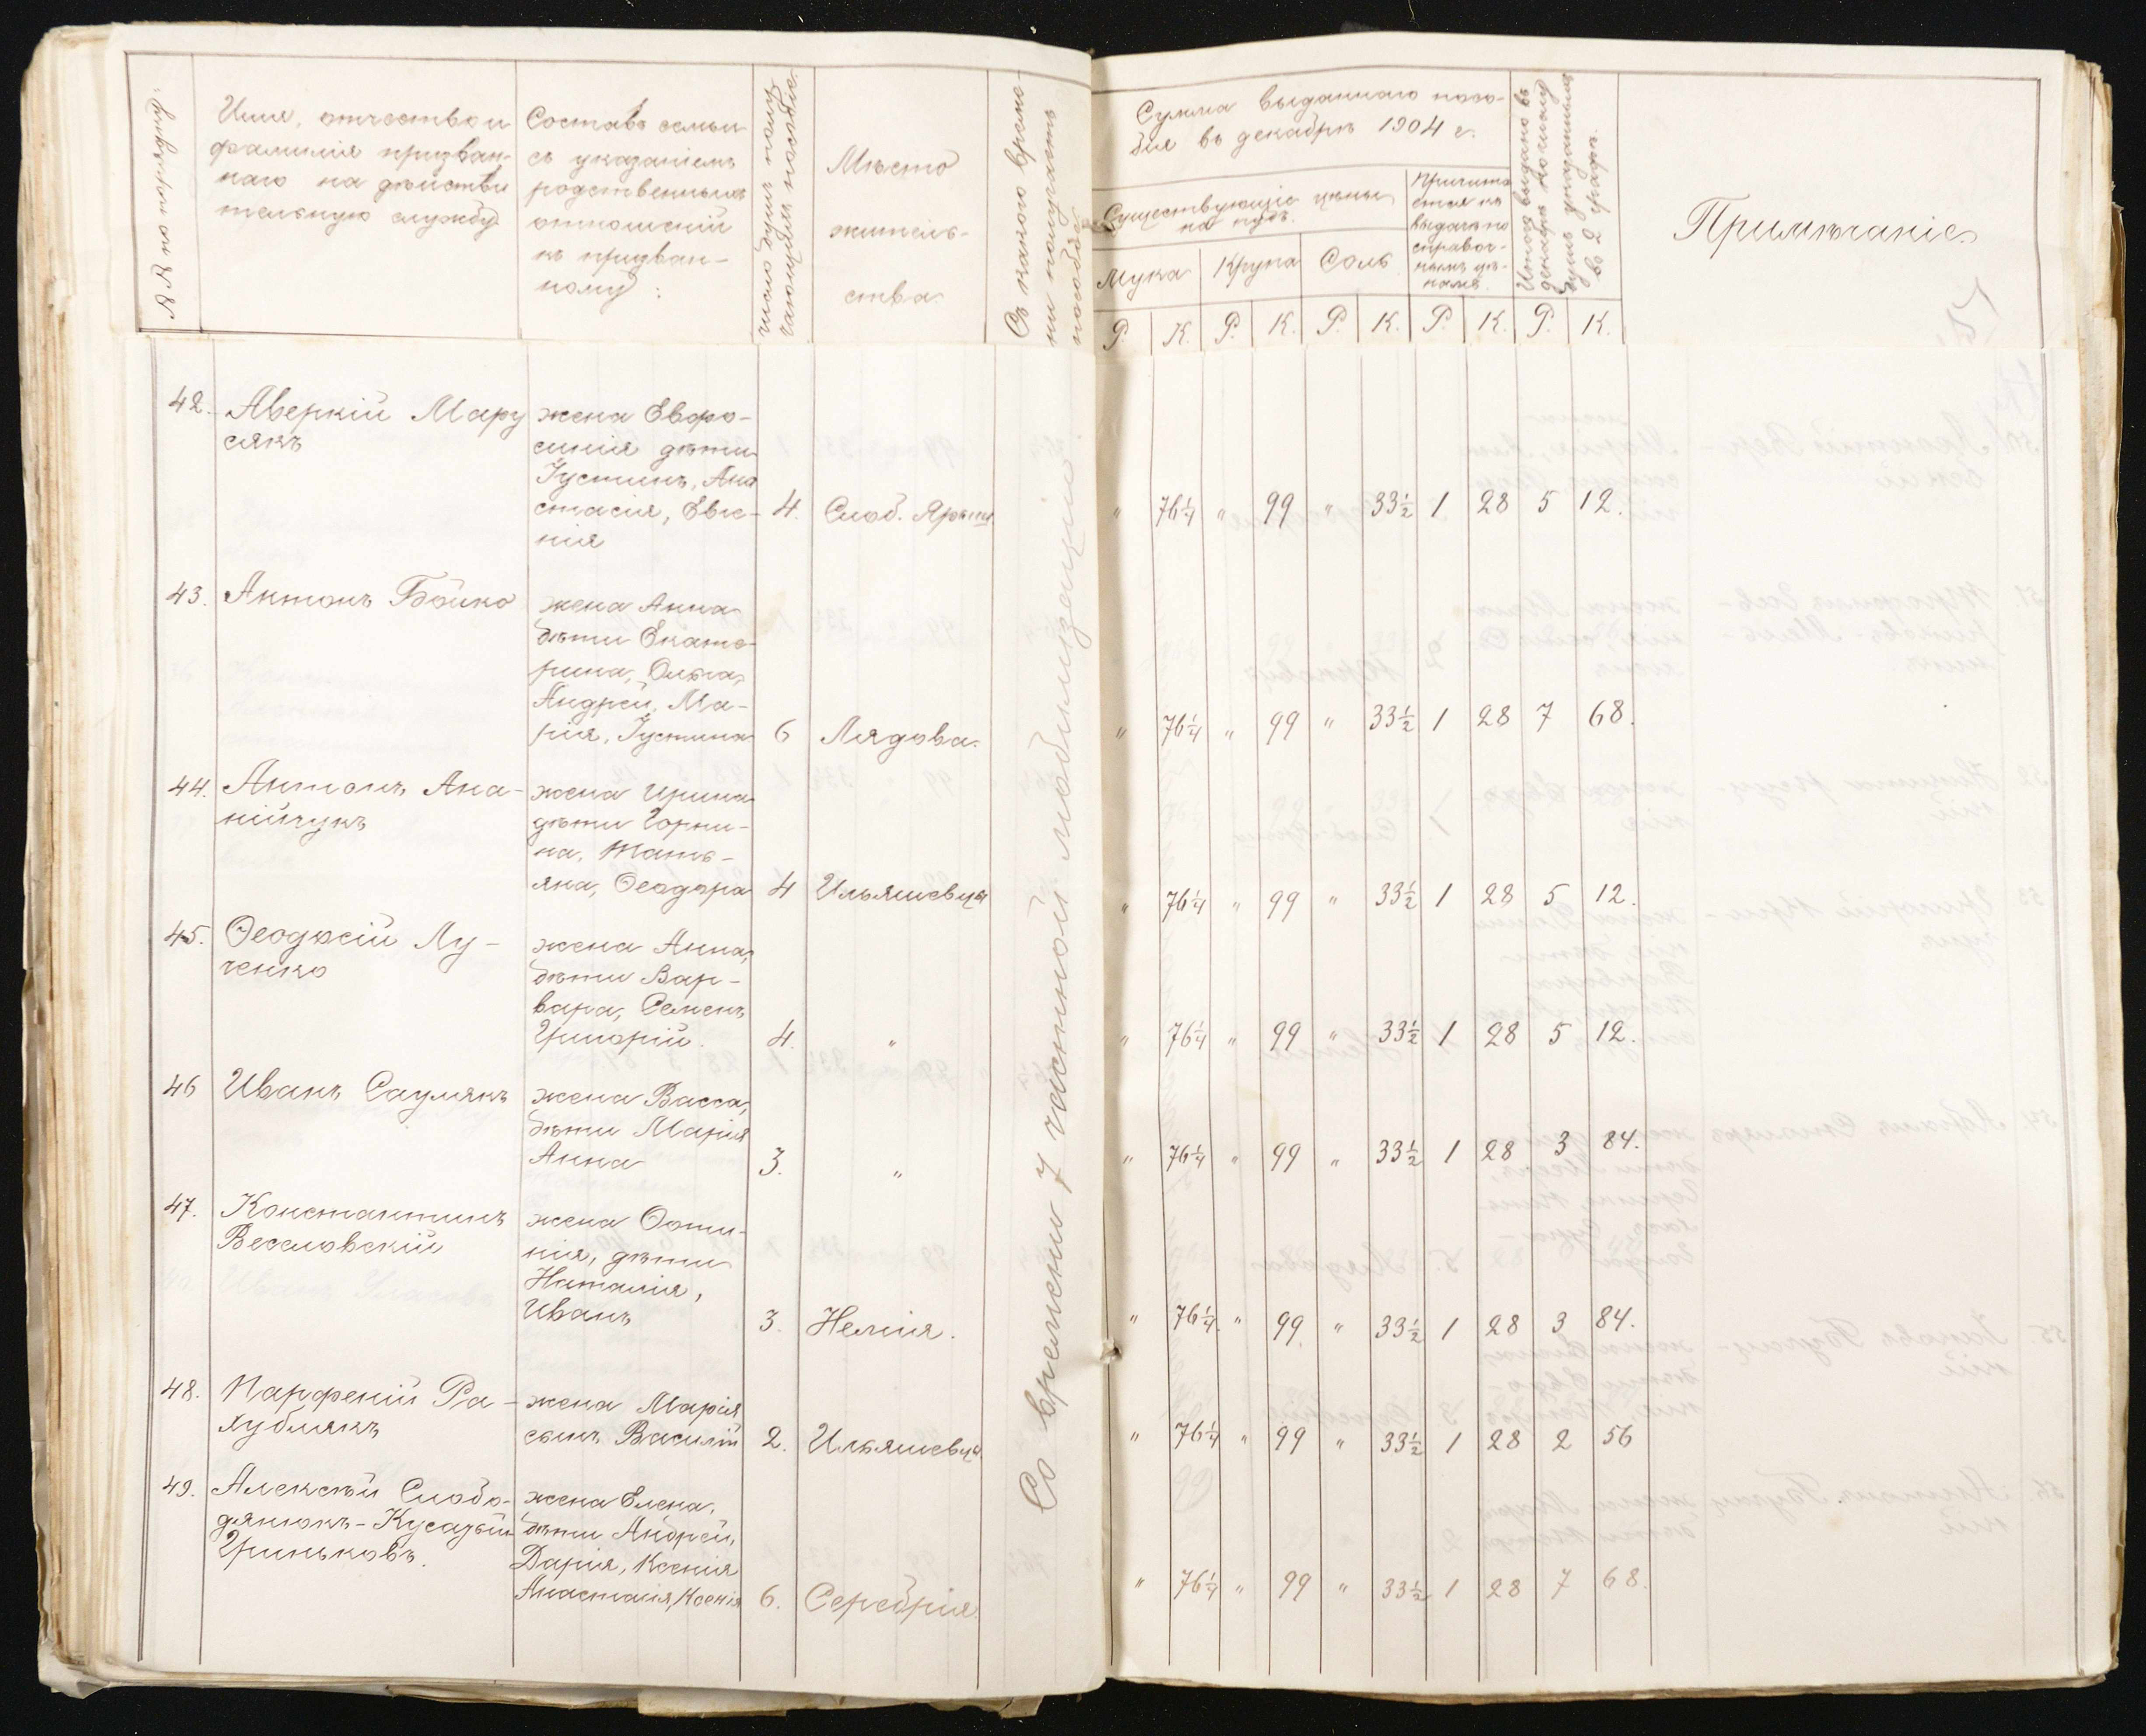 №№ по порядку.
Имя, отчество и
фамилія призван-
наго на дѣйстви
тельную службу
Составъ семьи
съ указаніемъ
родственныхъ
отношеній
къ призван-
ному:
Число душъ полу-
чающихъ пособіе.
Мѣсто
житель-
ства
Съ какого време-
ни получаетъ
пособіе
Сумма выданнаго посо-
бія въ декабрѣ 1904 г.
Существующіе цѣны
на пудъ.
Мука Крупа Соль
Причита
ется къ
выдачѣ по
справоч-
нымъ цѣ-
намъ.
Итого выдано въ
декабрѣ
душъ указаннымъ
въ 2 графѣ.
Примѣчаніе
Р. К. Р. К. Р. К. Р. К. Р. К.
42. Аверкій Мару
сякъ
жена Евфро-
синія дѣти
Іустинъ, Ана
стасія, Евге-
нія
4. Слоб. Яры
" 76¼ " 99 " 33½ 1 28 5 12.
43. Антонъ Бойко
жена Анна
дѣти Екате-
рина, Ольга,
Андрей, Ма-
рія, Іустина
6 Лядова.
" 76¼ " 99 " 33½ 1 28 7 68.
44. Антонъ Ана-
нійчукъ
жена Ирина
дѣти Горпи-
на, Тать-
яна, Ѳеодора
4 Ильяшевцы
" 76¼ " 99 " 33½ 1 28 5 12.
45. Ѳеодосій Лу-
ченко
жена Анна,
дѣти Вар-
вара, Семенъ
Григорій.
4. "
" 76¼ " 99 " 33½ 1 28 5 12.
46 Иванъ Саулякъ
жена Васса,
дѣти Марія
Анна
3. "
" 76¼ " 99 " 33½ 1 28 3 84.
47. Константинъ
Веселовскій
жена Фоти-
нія, дѣти
Наталія,
Иванъ
3. Немія.
" 76¼ " 99 " 33½ 1 28 3 84.
48. Парфеній Ра-
хублякъ
жена Марія
сынъ Василій
2. Ильяшевцы.
" 76¼ " 99 " 33½ 1 28 2 56
49. Алексѣй Слобо-
дянюкъ-
Гриньковъ.
жена Елена,
дѣти Андрей,
Дарія, Ксенія
Анастасія, Ксенія
6. Серебрія.
" 76¼ " 99 " 33½ 1 28 7 68.
Со времени 7 частной мобилизаціи